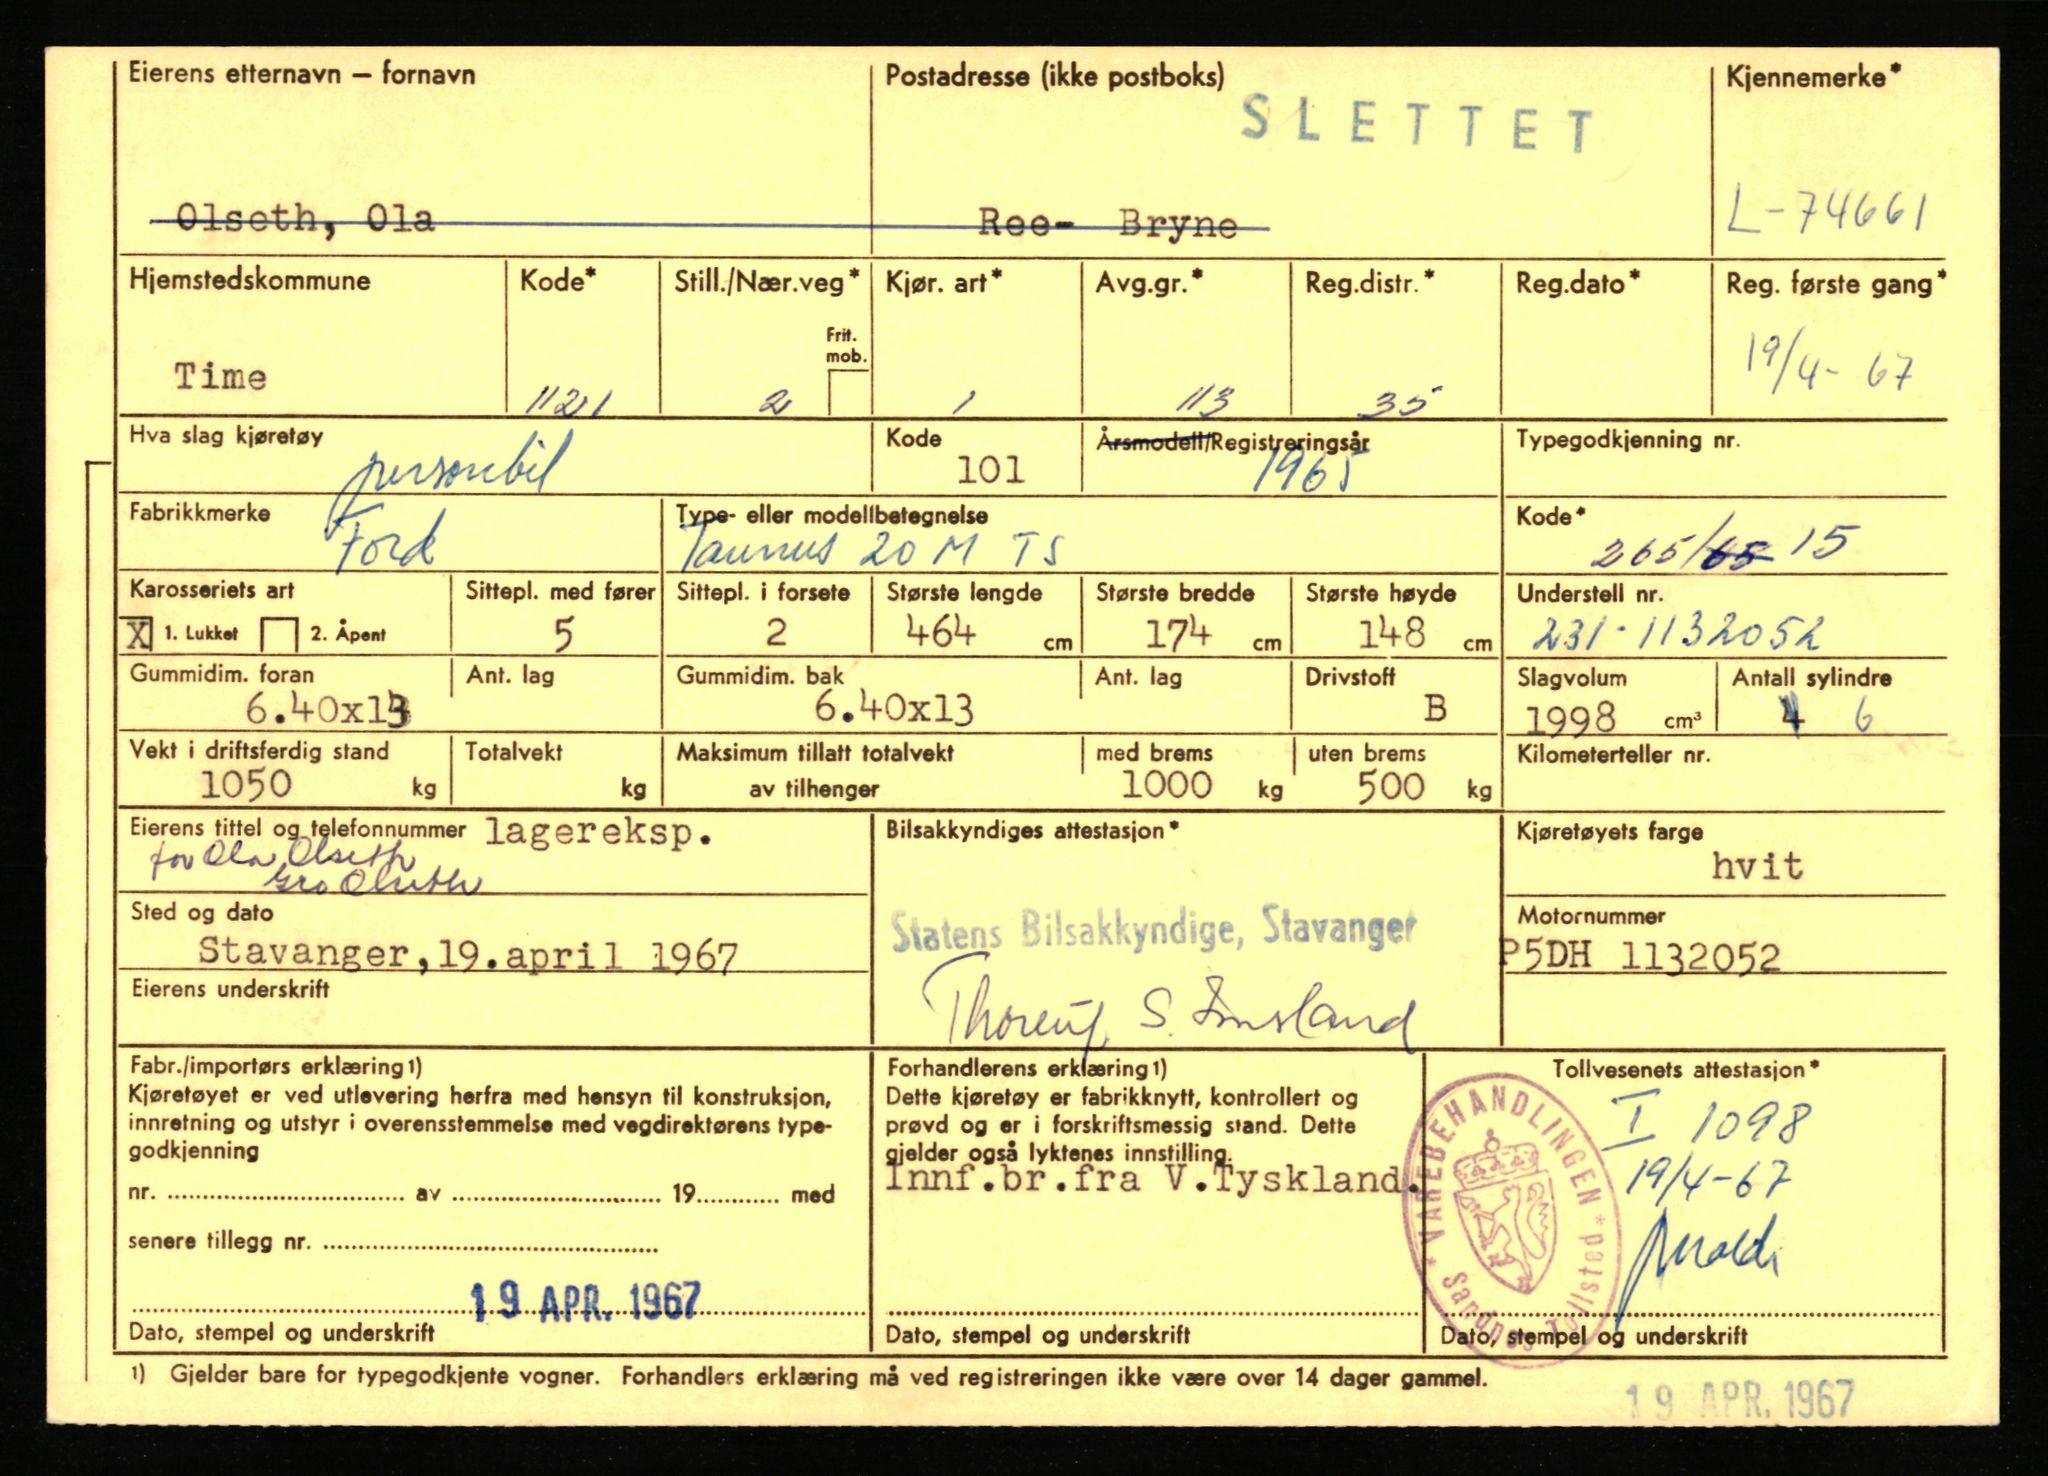 Eierens etternavn — fornavn
Postadresse (ikke postboks)
Kjennemerke*
SLETTET
Olseth, Ola
Ree- Bryne
L-74661
Hjemstedskommune
Kode*
Still./Nær.veg*
Kjør. art*
Avg.gr.*
Reg.distr.*
Reg.dato*
Reg. første gang*
Frit. mob.
Time
1121
2
1
113
35
19/4- 67
Hva slag kjøretøy
personbil
Kode
101
Årsmodell/Registreringsår
1965
Typegodkjenning nr.
Fabrikkmerke
Ford
Type- eller modellbetegnelse
Taunus 20 M TS
Kode*
265/65 15
Karosseriets art
X 1. Lukket 2. Åpent
Sittepl. med fører
5
Sittepl. i forsete
2
Største lengde
464 cm
Største bredde
174 cm
Største høyde
148 cm
Understell nr.
231-1132052
Gummidim. foran
6.40x13
Ant. lag
Gummidim. bak
6.40x13
Ant. lag
Drivstoff
B
Slagvolum
1998 cm³
Antall sylindre
4 6
Vekt i driftsferdig stand
1050 kg
Totalvekt
kg
Maksimum tillatt totalvekt
av tilhenger
med brems
1000 kg
uten brems
500 kg
Kilometerteller nr.
Eierens tittel og telefonnummer lagereksp.
for Ola Olseth
Gro Olseth
Bilsakkyndiges attestasjon*
Kjøretøyets farge
hvit
Sted og dato
Stavanger, 19.april 1967
Statens Bilsakkyndige, Stavanger
Motornummer
P5DH 1132052
Eierens underskrift
S.
Fabr./importørs erklæring1)
Kjøretøyet er ved utlevering herfra med hensyn til konstruksjon,
innretning og utstyr i overensstemmelse med vegdirektørens type-
godkjenning
nr. av 19 med
senere tillegg nr.
19 APR. 1967
Dato, stempel og underskrift
Forhandlerens erklæring1)
Dette kjøretøy er fabrikknytt, kontrollert og
prøvd og er i forskriftsmessig stand. Dette
gjelder også lyktenes innstilling.
Innf.br.fra V.Tyskland.
Dato, stempel og underskrift
Tollvesenets attestasjon*
I 1098
19/4-67
* VAREBEHANDLINGEN * Sandnes Tollsted
Dato, stempel og underskrift
1) Gjelder bare for typegodkjente vogner. Forhandlers erklæring må ved registreringen ikke være over 14 dager gammel.
19 APR. 1967